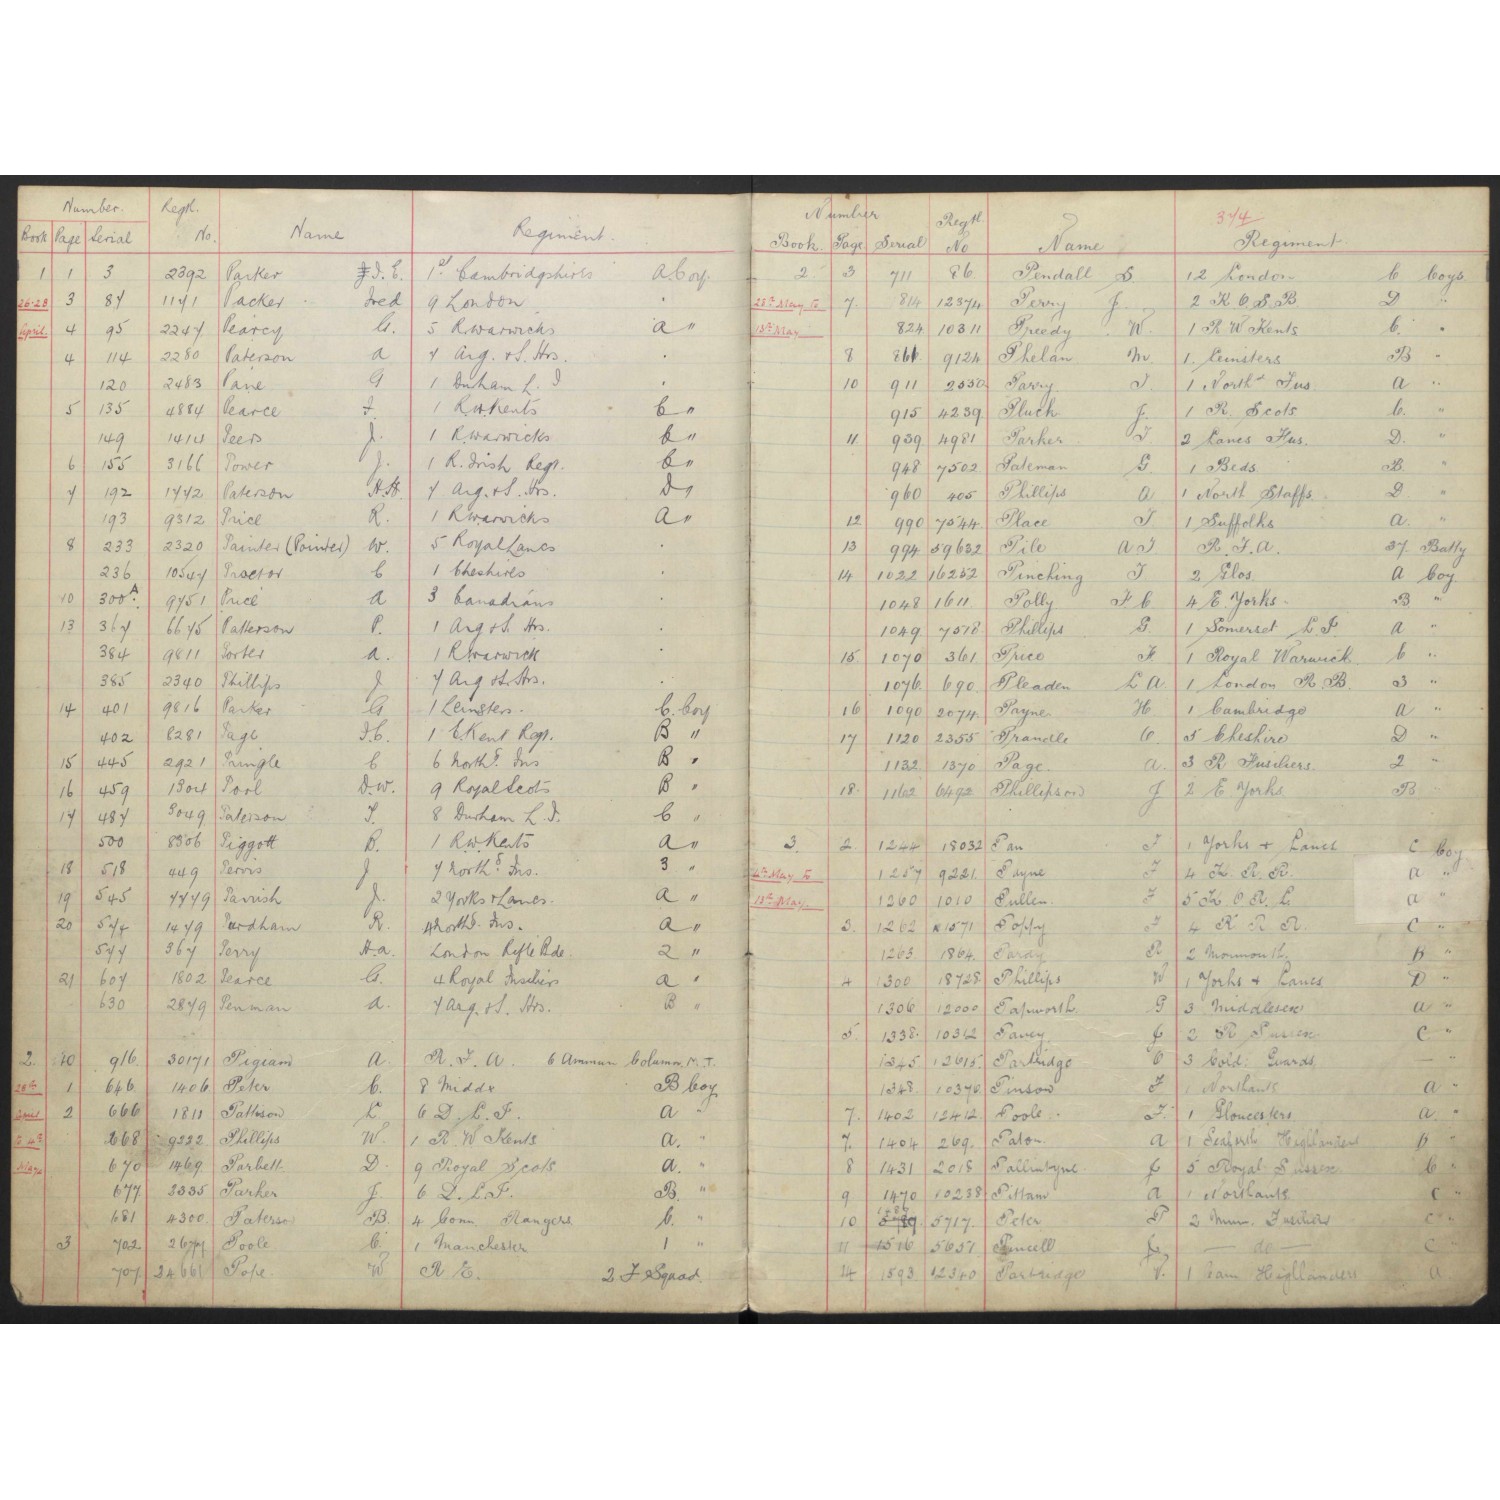 Number. Regtl.
Book Page Serial No. Name Regiment.
1 1 3 2392 Parker J.E. 1st Cambridgshires A. Coy.
26-28 3 84 1141 Packer Fred 9 London "
April. 4 95 2247 Pearcy G. 5 R. Warwicks A "
4 114 2280 Paterson A 7 Arg. & S. Hrs. "
120 2483 Pane G 1 Durham L. I "
5 135 4884 Pearce F. 1 R.W. Kents C "
149 1414 Peers J. 1 R. Warwicks C "
6 155 3166 Power J. 1 R. Irish Regt. C "
7 192 1772 Paterson A.H. 7 Arg. & S. Hrs. D "
193 9312 Price R. 1 R. Warwicks A "
8 233 2320 Painter (Pointer) W. 5 Royal Lancs "
236 10547 Proctor C 1 Cheshires "
10 300A. 9751 Price A 3 Canadians "
13 367 6675 Patterson P. 1 Arg & S. Hrs. "
384 9811 Porter A. 1 R. Warwick "
385 2340 Phillips J 7 Arg & S. Hrs. "
14 401 9816 Parker G 1 Leinsters. C. Coy
402 8281 Page F.C. 1 E Kent Regt. B "
15 445 2921 Pringle C 6 North'd. Fus B "
16 459 1304 Pool D.W. 9 Royal Scots B "
17 487 3049 Paterson T. 8 Durham L. I. C "
500 8306 Piggott B. 1 R.W. Kents A "
18 518 449 Pervis J 7 North'd. Fus. 3 "
19 545 7779 Parrish J. 2 Yorks & Lancs. A "
20 574 1479 Purdham R. 4 North'd. Fus. A "
577 367 Perry H.A. London Rifle Bde. 2 "
21 607 1802 Pearce G. 4 Royal Fusiliers A "
630 2879 Penman A. 7 Arg. & S. Hrs. B "
2. 40 916 30171 Pigram A. R. F. A 6 Ammun Column M.T.
28th 1 646 1406 Peter C. 8 Middx B Coy
April 2 666 1811 Patteson L 6 D. L. I. A "
to 4th 668 9332 Phillips W. 1 R. W Kents A. "
May 670 1469 Parbett D. 9 Royal Scots A. "
677 3335 Parker J. 6 D. L. I. B. "
681 4300 Paterson B. 4 Conn Rangers C. "
3 702 2674 Poole C. 1 Manchester 1 "
707 24661 Pope W R E. 2 F Squad.
Number Regtl 314
Book. Page. Serial No Name Regiment
2 3 711 86 Pendall S. 12 London C Coys
28th May to 7. 814 12374 Perry J. 2 K O S B D "
13th May 824 10311 Preedy W. 1 R W Kents C. "
8 861 9124 Phelan M. 1. Leinsters B "
10 911 2550 Parry T. 1 North'd Fus. A "
915 4239 Pluck J. 1 R. Scots C. "
11. 939 4981 Parker T. 2 Lancs Fus. D. "
948 7502 Pateman G. 1 Beds B. "
960 405 Phillips A 1 North Staffs. D. "
12 990 7544 Place T. 1 Suffolks A. "
13 994 59632 Pile A T. R. F. A. 37 Batty
14 1022 16252 Pinching T 2 Glos. A Coy
1048 1611 Polly F C. 4 E. Yorks B "
1049 7518 Phillips G. 1 Somerset L I. A "
15 1070 361 Price H 1 Royal Warwick C "
1076 690 Pleaden L A. 1 London R. B. 3 "
16 1090 2074 Payne H 1 Cambridge A "
17 1120 2355 Prandle C. 5 Cheshire D "
1132 1370 Page. A. 3 R Fusiliers. 2 "
18. 1162 6492 Phillipson J 2 E Yorks B
3. 2. 1244 18032 Pan T 1 Yorks & Lancs C Coy
May to 1257 9221 Payne F 4 K. R. R. A "
13th May. 1260 1010 Pullen. F 5 K O R. L A "
3. 1262 R1571 Poppy F 4 K R R. C "
1263 1864 Pardy R 2 Monmouth. B "
4 1300 18728 Phillips W 1 Yorks & Lancs D "
1306 12000 Papworth. G 3 Middlesex A "
5. 1338 10342 Pavey J 2 R Sussex C "
1345 12615 Partridge C 3 Cold: Guards — "
1348 10376 Pinson F 1 Northants A "
7. 1402 12412 Poole. F. 1 Gloucesters A. "
7. 1404 269. Paton A 1 Seaforth Highlanders B "
8 1431 2018 Pallintyne J 5 Royal Sussex C "
9 1470 10238 Pittam A 1 Northants C "
10 1486 5717. Peter P 2 Mun. Fusiliers C "
11 1516 5651 Purcell J. — do — C "
14 1593 12340 Partridge V. 1 Cam Highlanders A